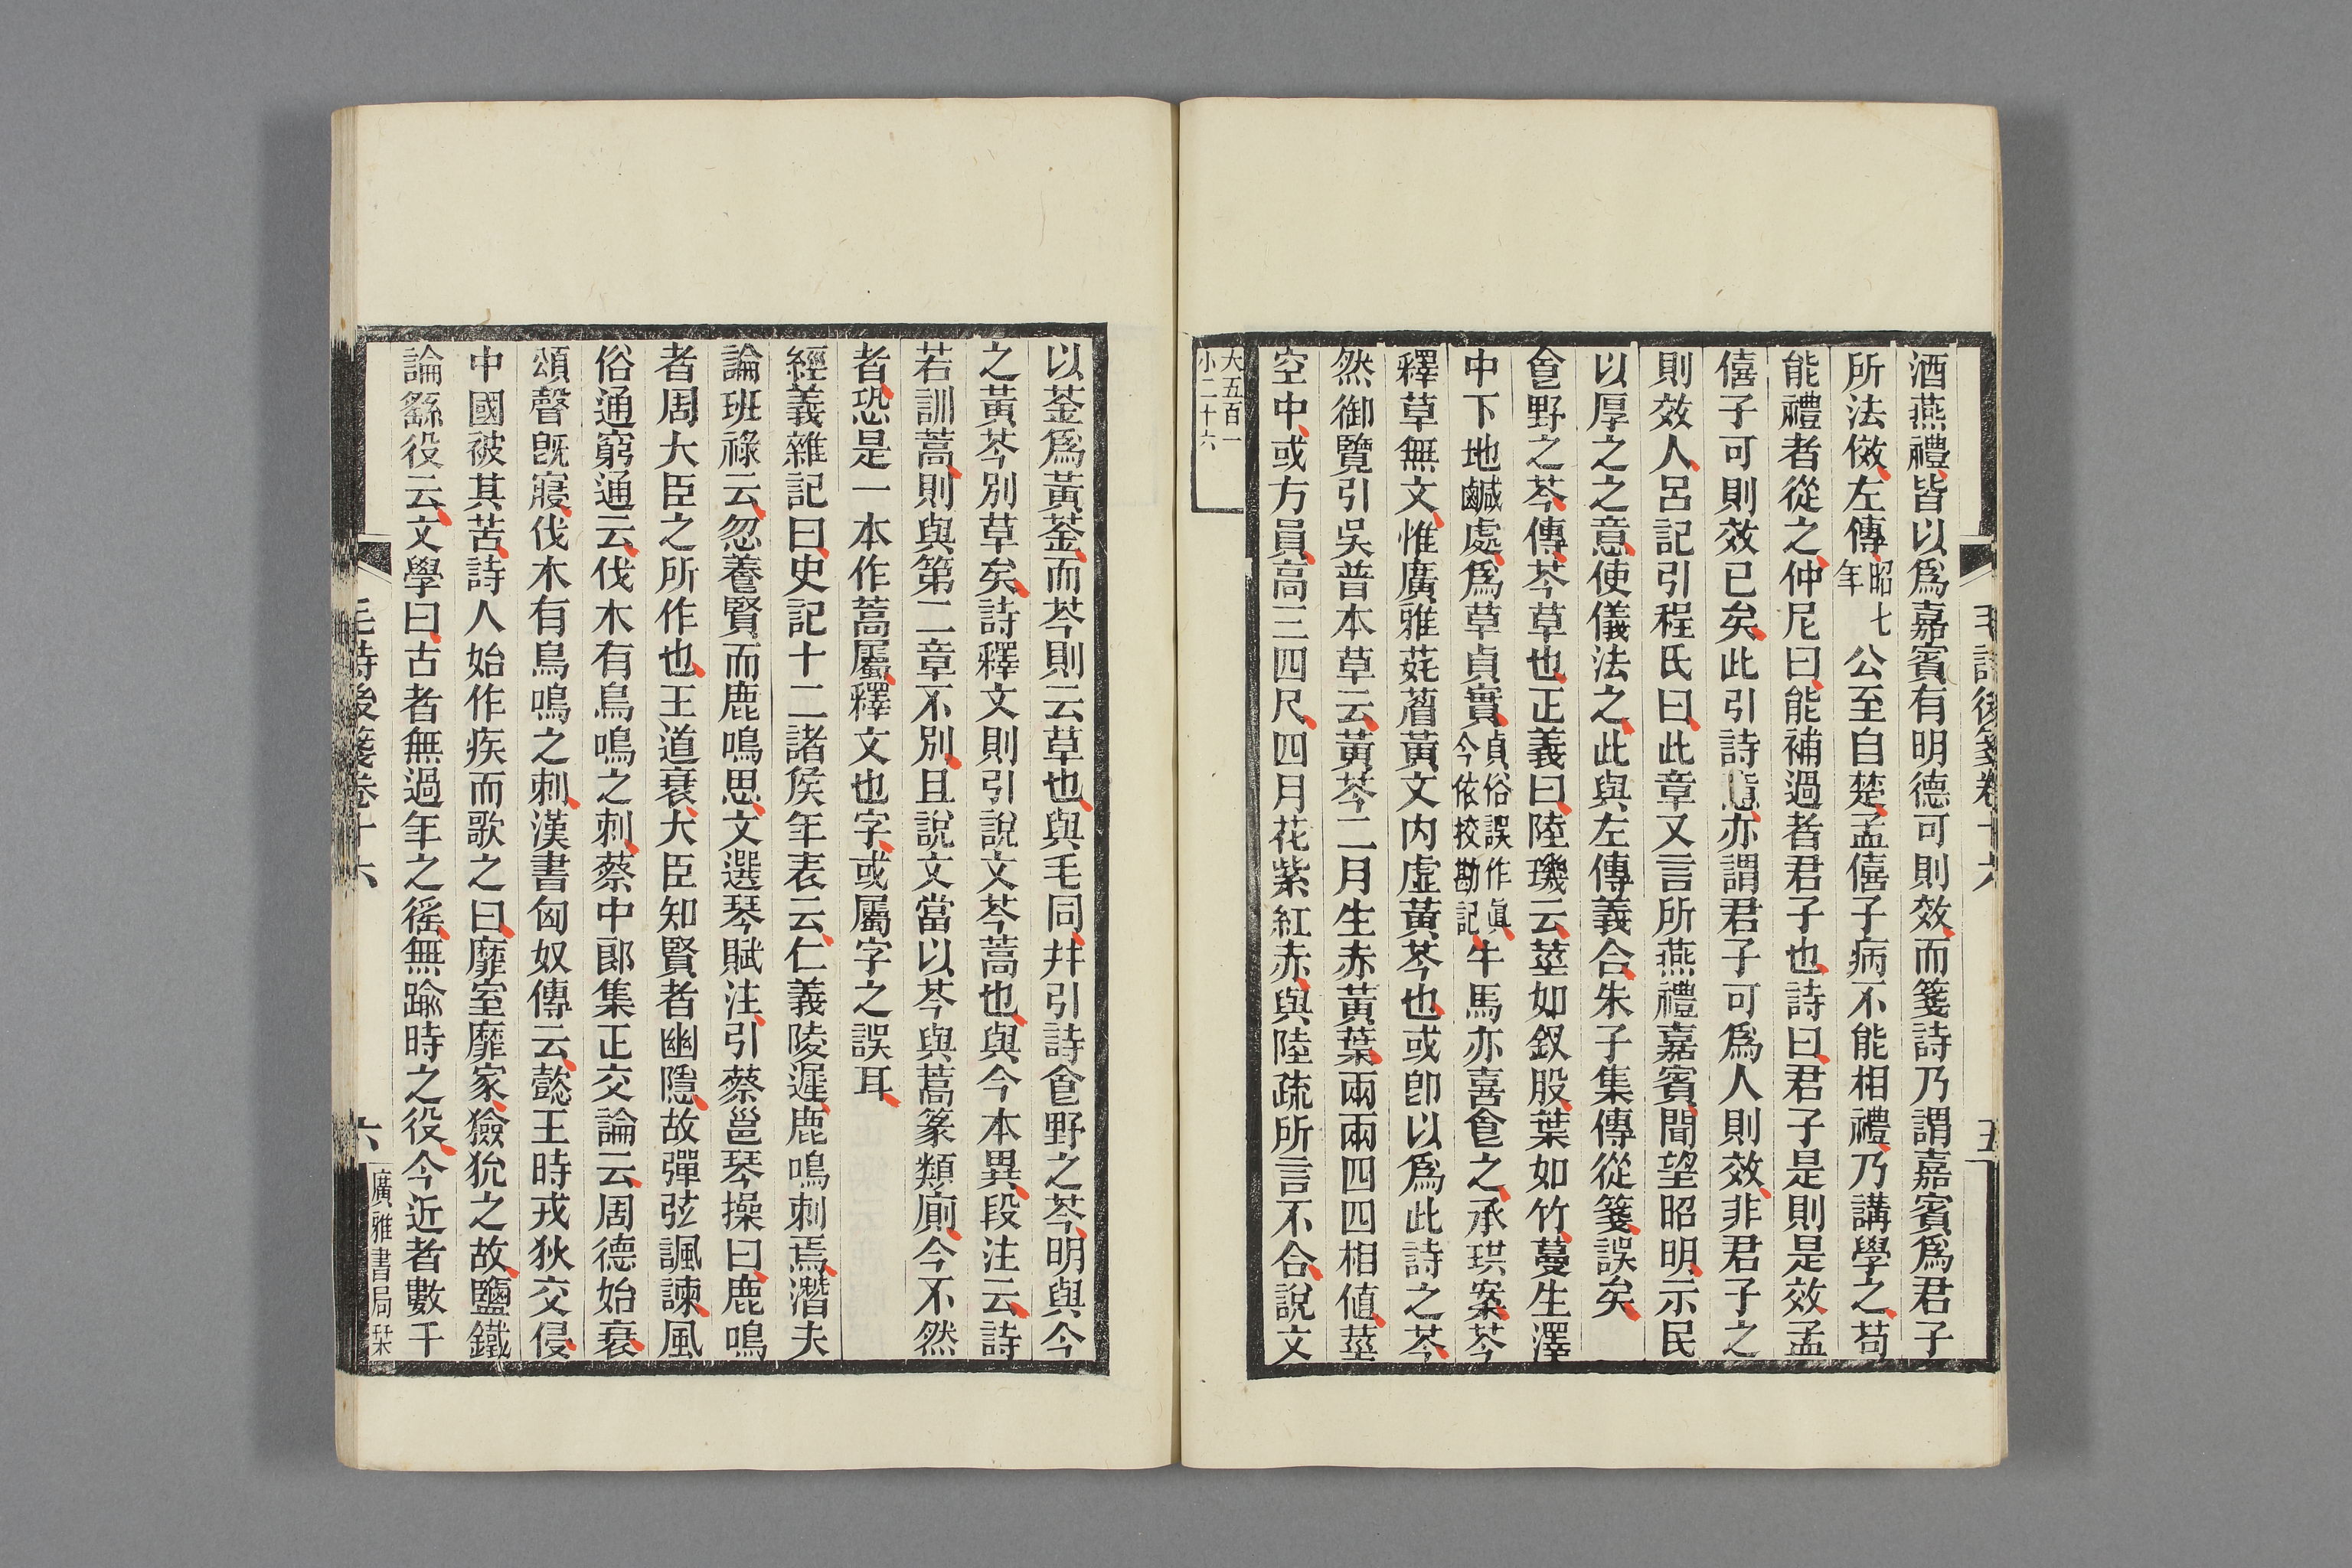 毛詩後箋卷十六
五
酒燕禮皆以爲嘉賓有明德可則效而箋詩乃謂嘉賓爲君子
所法傚左傳昭七年公至自楚孟僖子病不能相禮乃講學之苟
能禮者從之仲尼曰能補過者君子也詩曰君子是則是效孟
僖子可則效已矣此引詩意亦謂君子可爲人則效非君子之
則效人呂記引程氏曰此章又言所燕禮嘉賓聞望昭明示民
以厚之之意使儀法之此與左傳義合朱子集傳從箋誤矣
食野之芩傳芩草也正義曰陸璣云莖如釵股葉如竹蔓生澤
中下地鹹處爲草貞實貞俗誤作眞今依挍勘記牛馬亦喜食之承珙案芩
釋草無文惟廣雅菧葿黃文內虛黃芩也或卽以爲此詩之芩
然御覽引吳普本草云黃芩二月生赤黃葉兩兩四四相值莖
空中或方員高三四尺四月花紫紅赤與陸疏所言不合說文
大五百一
小二十六
以菳爲黃菳而芩則云草也與毛同幷引詩食野之芩明與今
之黃芩別草矣詩釋文則引說文芩蒿也與今本異段注云詩
若訓蒿則與第二章不別且說文當以芩與蒿篆類廁今不然
者恐是一本作蒿屬釋文也字或屬字之誤耳
經義雜記曰史記十二諸侯年表云仁義陵遲鹿鳴刺焉潛夫
論班祿云忽養賢而鹿鳴思文選琴賦注引蔡邕琴操曰鹿鳴
者周大臣之所作也王道衰大臣知賢者幽隱故彈弦諷諫風
俗通窮通云伐木有鳥鳴之刺蔡中郎集正交論云周德始衰
頌聲旣寢伐木有鳥鳴之刺漢書匈奴傳云懿王時戎狄交侵
中國被其苦詩人始作疾而歌之曰靡室靡家獫狁之故鹽鐵
論繇役云文學曰古者無過年之徭無踰時之役今近者數千
毛詩後箋卷十六
六
廣雅書局栞